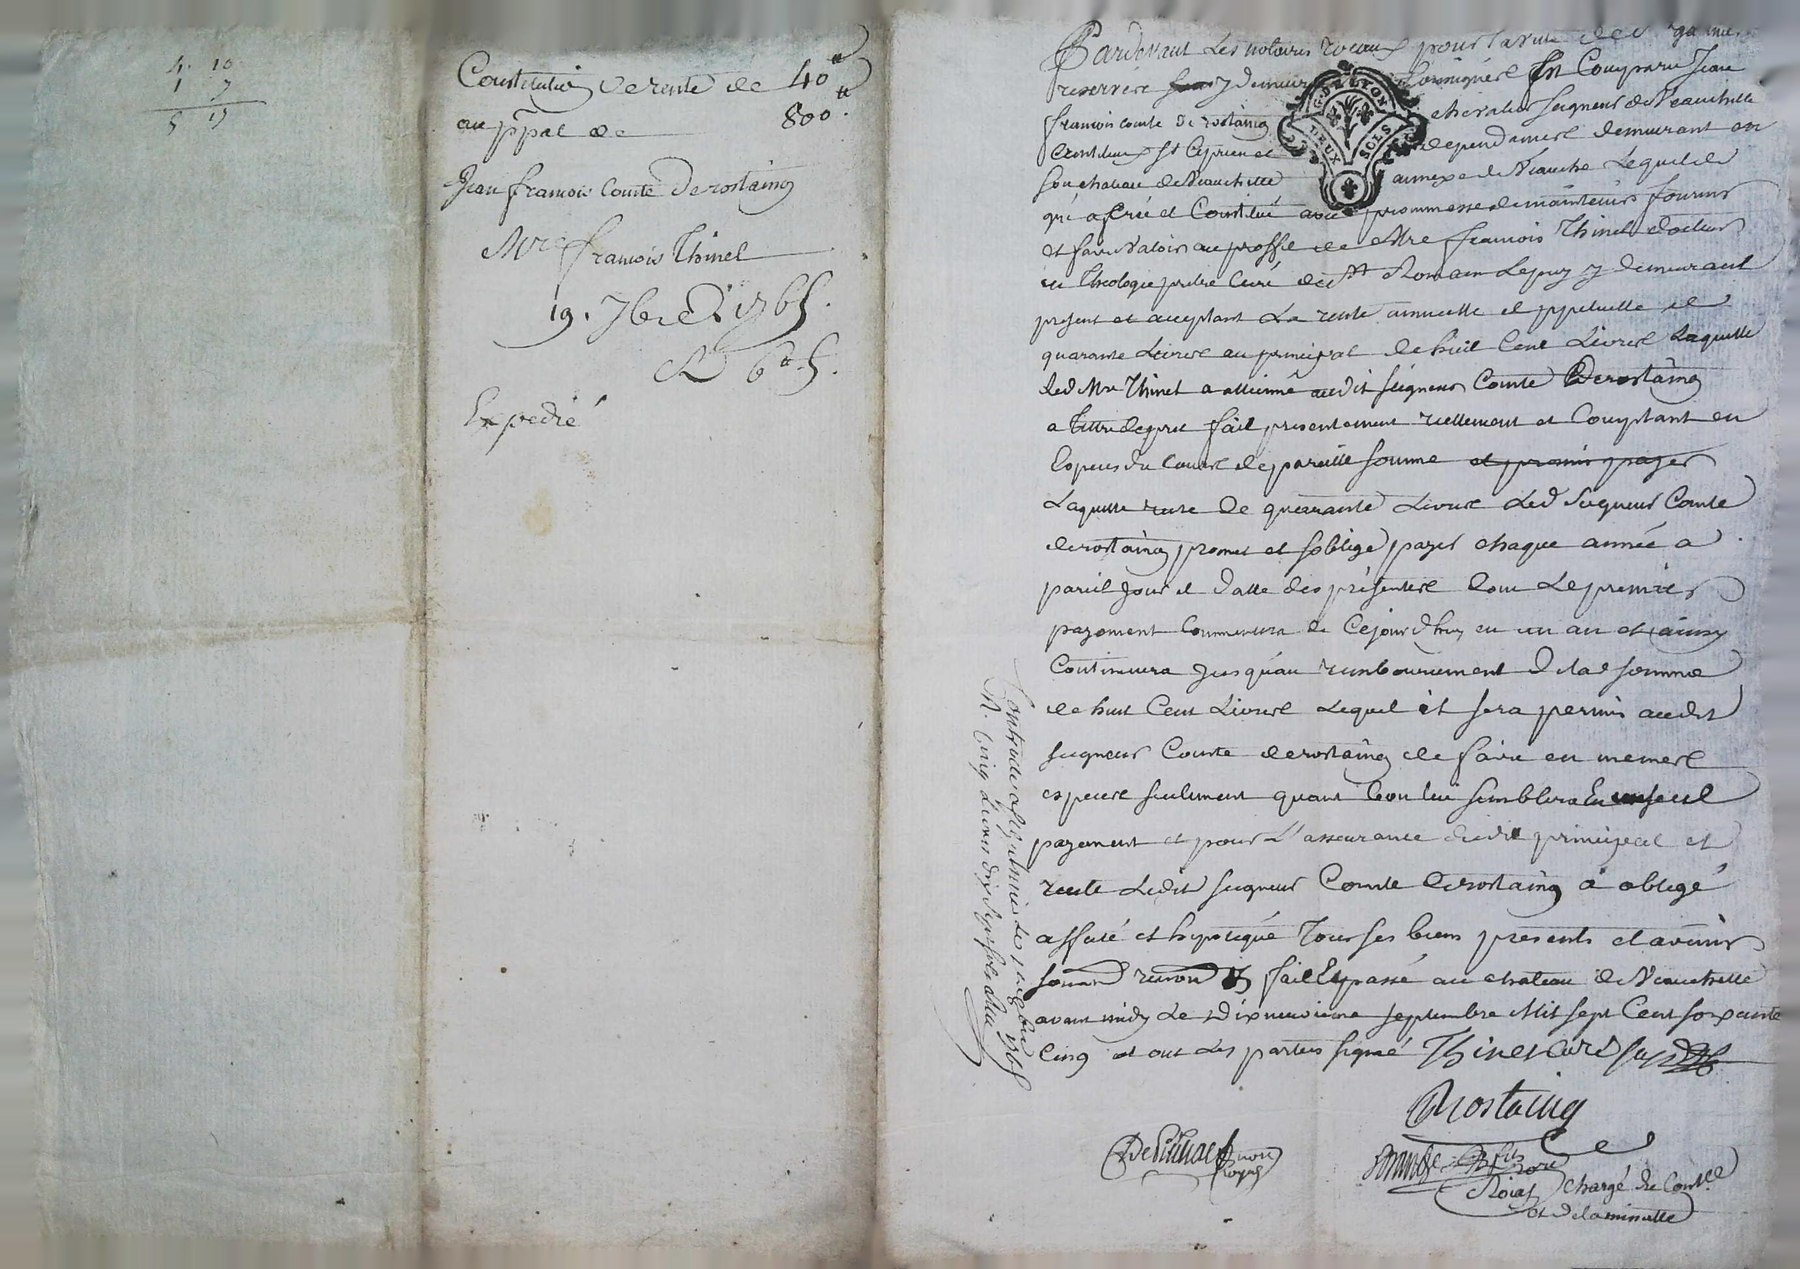 4. 10
1 7
5 17
Constitution de rente de 40 ₶
au ppãl de 800 ₶.
Jean françois Comte De rostaing
Mre françois Thinel
19. 7bre 1765.
R 6₶ .
Expedié
Pardevant Les notaires royaux pour la ville de
reservés y demeurant soussignés fut Comparu Jean
G. DE LYON
DEUX SOLS
françois comte De rostaing chevalier seigneur de Veauchette
St Cyprien et dependances demeurant en
son chateau de Veauchette annexe de Veauche Lequel de
gré a créé et Constitué avec prommesse de maintenir fournir
et faire valoir au proffit de Mre françois Thinel docteur
en Theologie prêtre Curé de St Romain Lepuy y demeurant
present et acceptant La rente annuelle et ppetuelle de
quarante Livres au principal de huit Cent Livres Laquelle
led Mre Thinel a audit seigneur Comte De rostaing
a titre de pret fait presentement reellement et Comptant en
Especes du Cours de pareille somme et promis payer
Laquelle rente de quarante Livres Led Seigneur Comte
de rostaing promet et soblige payer chaque année a
pareil jour et datte des présentes dont Le premier
payement Commencera de Cejourdhuy en un an et ainsy
Continuera jusqu'au remboursement de lad somme
de huit Cent Livres Lequel il sera permis audit
seigneur Comte de rostaing de faire en memes
especes seulement quant bon lui semblera En un seul
payement et pour L'assurance dudit principal et
rente Ledit seigneur Comte De rostaing à obligé
affecté et hypotequé Tous ses biens presents et avenir
renon fait Et passé au chateau de Veauchette
avant midy Le dix neuvieme septembre Mil sept Cent soixante
Cinq et ont Les parties signé Thinel Curé
Rostaing
not
Royal
fils
Roial chargé du Contlle
et de la minutte
Controlé a St 1765
R. Cinq Livres dix sept sols